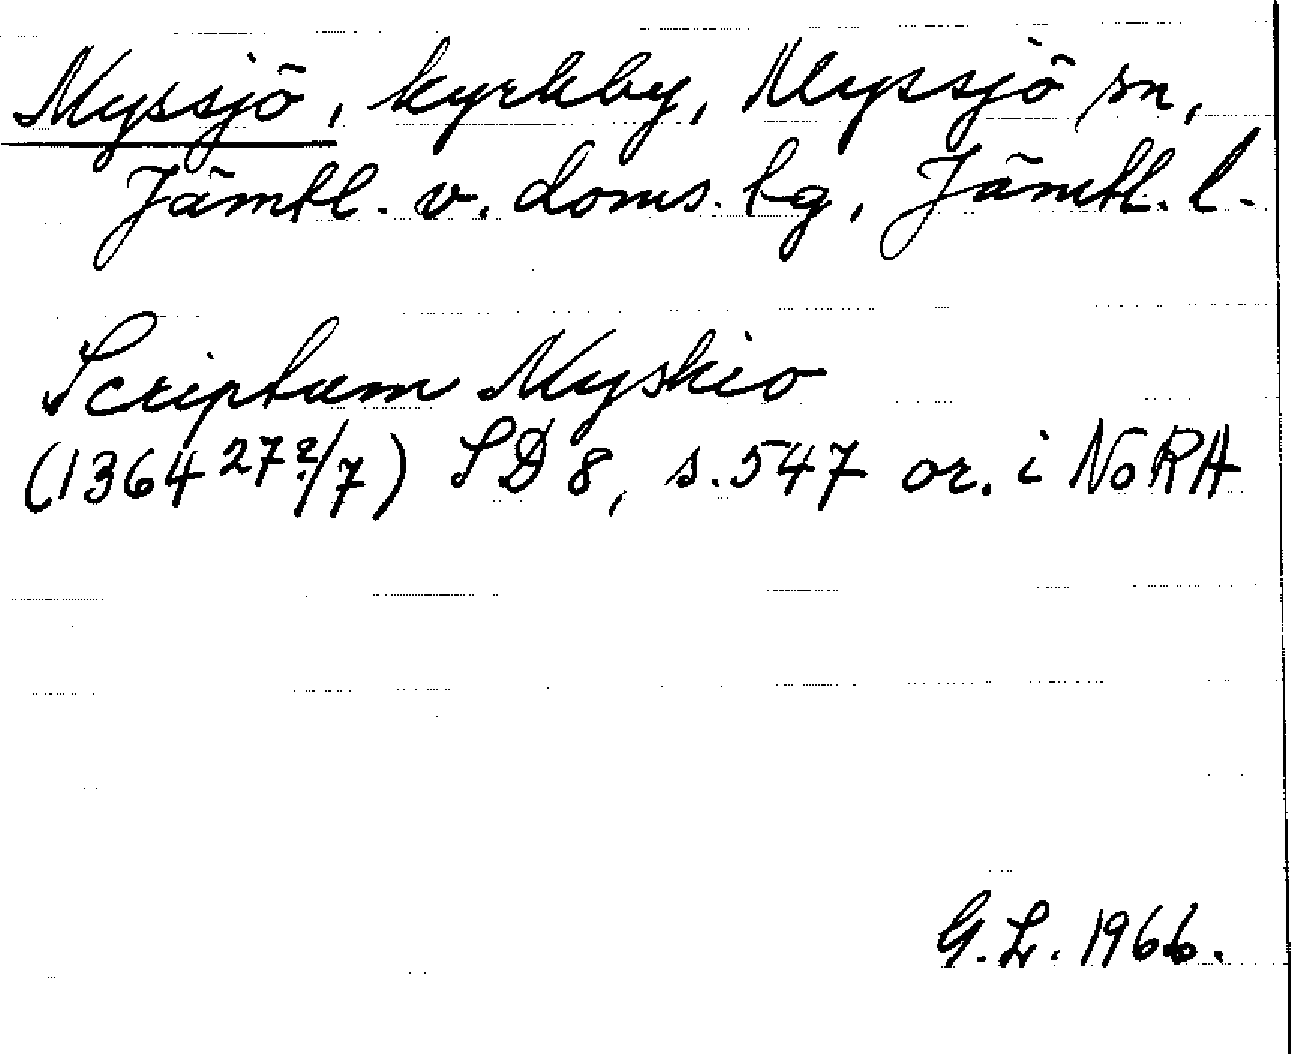 Myssjö, kyrkby, Myssjö sn,
Jämtl. v. doms. lg, Jämtl. l.
Scriptum Myskio
(1364 27?/7) SD 8, s. 547 or. i NoRA
G.L. 1966.